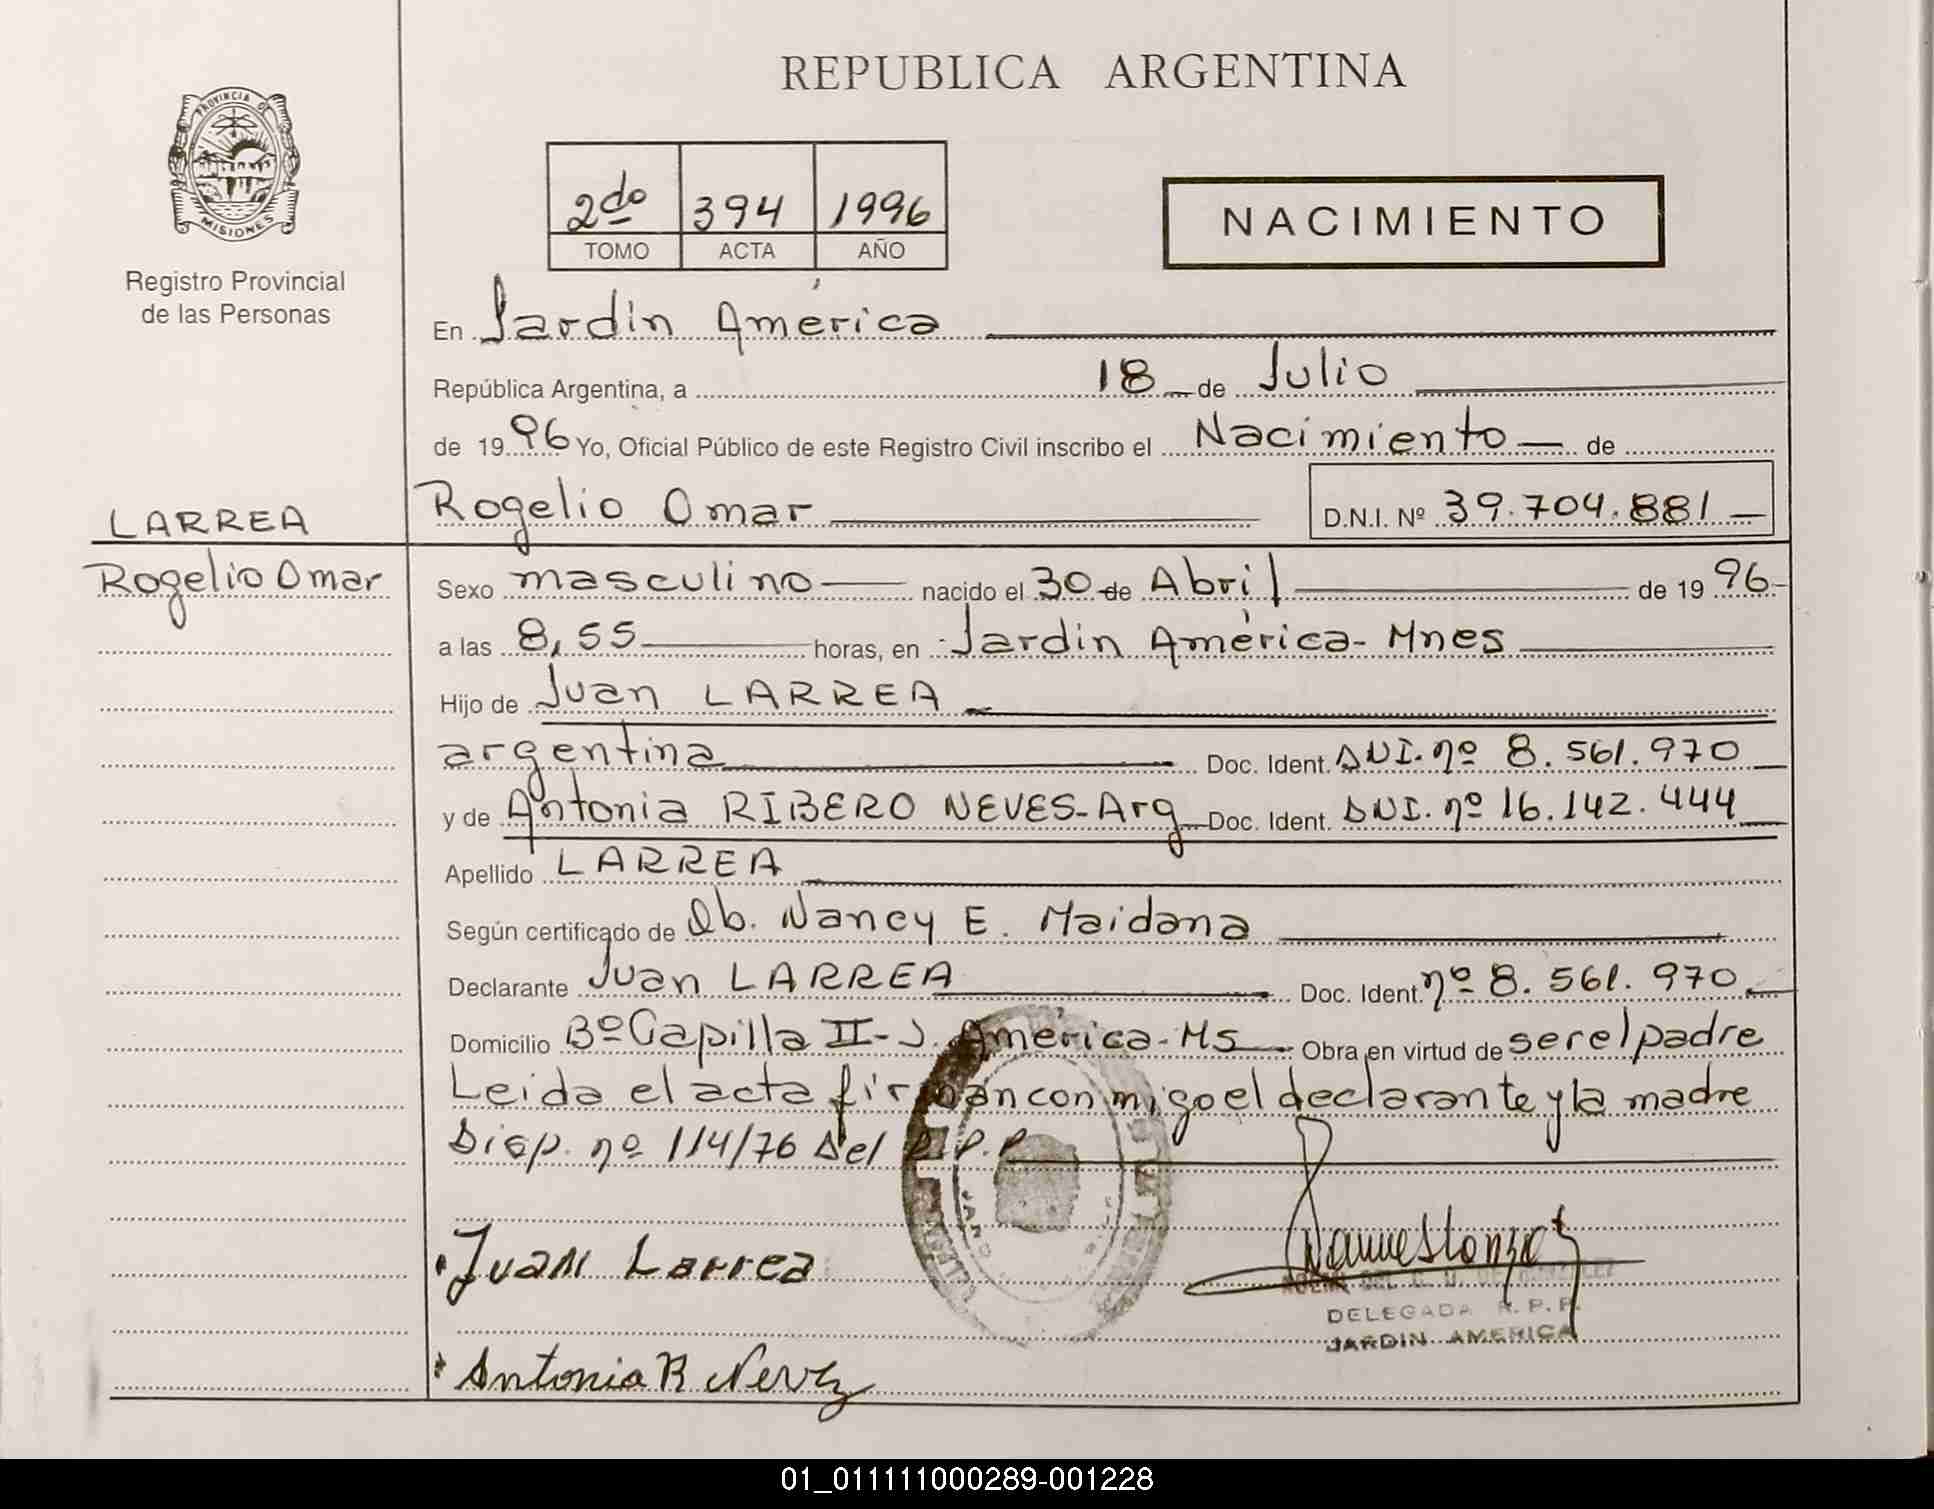 REPUBLICA ARGENTINA
PROVINCIA DE
MISIONES
Registro Provincial
de las Personas
2do 394 1996
TOMO ACTA AÑO
NACIMIENTO
En Jardín América
República Argentina, a 18 de Julio
de 1996 Yo, Oficial Público de este Registro Civil inscribo el Nacimiento de
LARREA
Rogelio Omar
Rogelio Omar D.N.I. Nº 39.704.881
Sexo masculino nacido el 30 de Abril de 1996
a las 8,55 horas, en Jardin América - Mnes
Hijo de Juan LARREA
argentina Doc. Ident. DNI. nº 8.561.970
y de Antonia RIBERO NEVES - Arg Doc. Ident. DNI. nº 16.142.444
Apellido LARREA
Según certificado de Ob. Nancy E. Maidana
Declarante Juan LARREA Doc. Ident. nº 8.561.970
Domicilio Bº Capilla II - J. América - Ms Obra en virtud de ser el padre
Leida el acta firman conmigo el declarante y la madre
Disp. nº 114/76 del R.P.P.
Juan Larrea
DELEGADA R.P.P.
JARDIN AMERICA
Antonia R Nevez
01_011111000289-001228